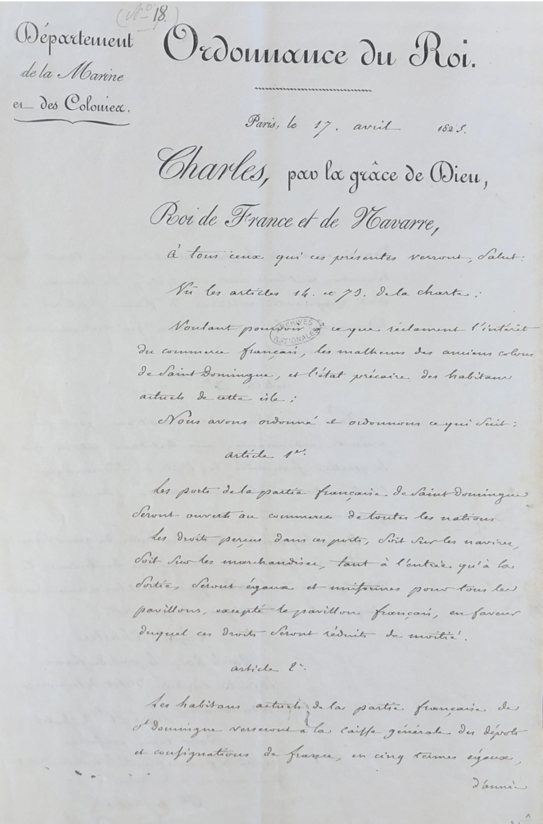 (N° 18.)
Département
de la Marine
et des Colonies.
Ordonnance du Roi.
Paris, le 17. avril 1825.
Charles, par la grâce de Dieu,
Roi de France et de Navarre,
À tous ceux qui ces présentes verront, Salut:
Vu les articles 14. et 73. de la charte;
Voulant pourvoir à ce que réclament l'intérêt
ARCHIVES NATIONALES
du commerce français, les malheurs des anciens colons
de Saint Domingue, et l'état précaire des habitans
actuels de cette isle;
Nous avons ordonné et ordonnons ce qui suit:
article 1er.
Les ports de la partie française de Saint Domingue
seront ouverts au commerce de toutes les nations.
Les droits perçus dans ces ports, soit sur les navires,
soit sur les marchandises, tant à l'entrée qu'à la
sortie, seront égaux et uniformes pour tous les
pavillons, excepté le pavillon français, en faveur
duquel ces droits seront réduits de moitié.
article 2e.
Les habitans actuels de la partie française de
St Domingue verseront à la caisse générale des dépôts
et consignations de france, en cinq termes égaux,
d'année